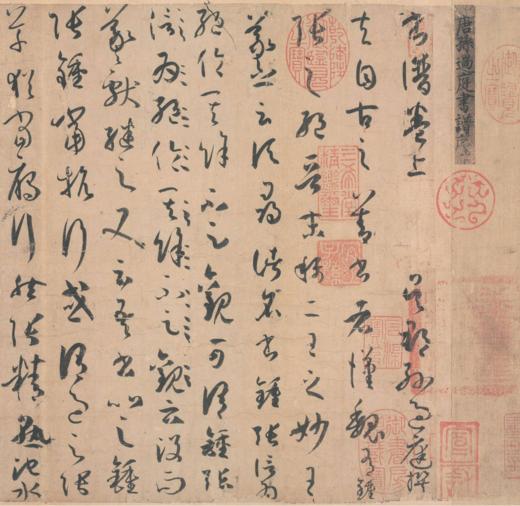 唐孫過庭書譜序
書譜卷上 吳郡孫過庭撰
夫自古之善書者漢魏有鍾
張之絕晉末稱二王之妙王
羲之云頃尋諸名書鍾張信為
絕倫其餘不足觀可謂鍾張
信為絕倫其餘不足觀云沒而
羲獻繼之又云吾書比之鍾
張鍾當抗行或謂過之張
草猶當鴈行然張精熟池水